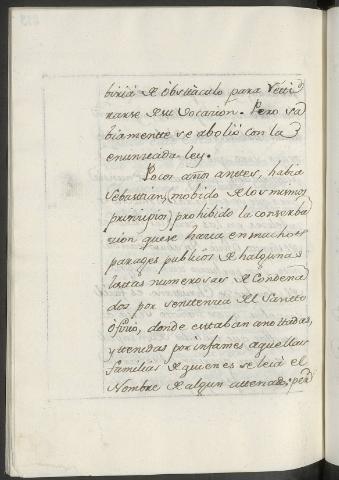 biria de òbstaculo para retti
rarse de su vocazion. Pero sa
biamentte se abolió con la
enunziada ley.
Pocos años anttes, habia
Sebasttian, mobido de los mismos
prinzipios, prohibido la conserba
zion que se hazia en muchos
parages publicos de halgunas
listtas numerosas de Condena
dos por senttenzia del Santto
Ofizio, donde esttaban anottadas,
y ttenidas por infames aquellas
familias de quienes se leia el
Nombre de algun attenado; però